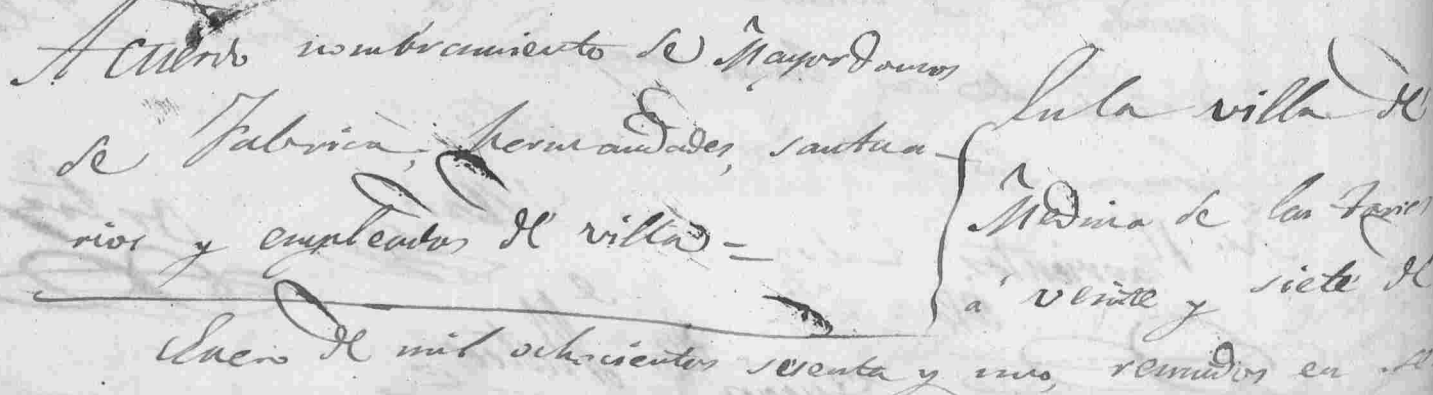 Acuerdo nombramiento de Mayordomos
de Fabrica, hermandades, santua-
rios y empleados de villa =
En la villa de
Medina de las Torres
á veinte y siete de
Enero de mil ochocientos sesenta y uno, reunidos en